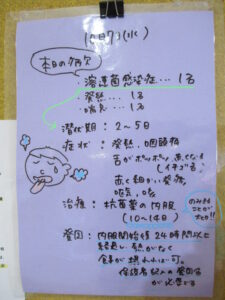 本日の病欠
・溶連菌感染症…1名
・発熱…1名
・喘息…1名
潜伏期：2〜5日
症状：発熱、咽頭痛
舌がボツボツ赤くなる
(イチゴ舌)
赤く細かい発疹、
嘔気、咳
治療：抗菌薬の内服
(10〜14日)
のみきる
ことが
大切!!
登園：内服開始後24時間以上
経過し、熱がなく
食事が摂れれば可。
保護者記入の登園届
が必要です